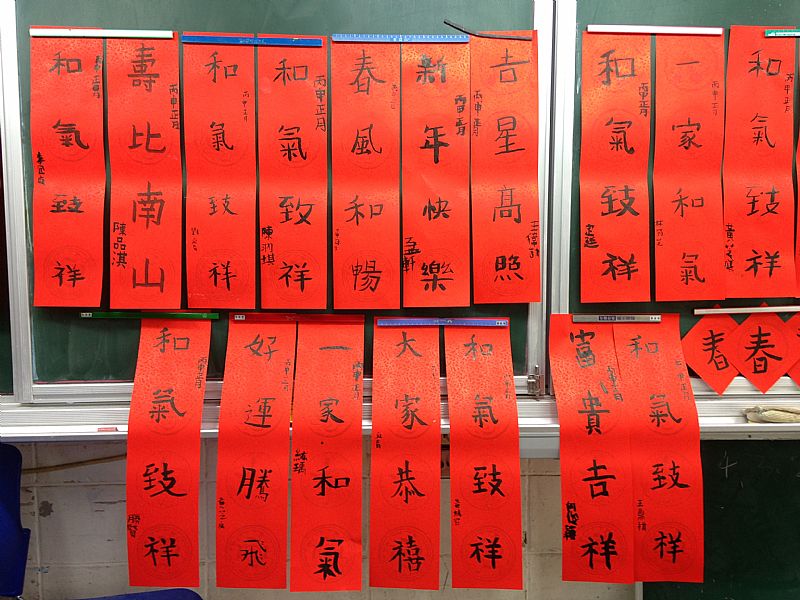 和氣致祥
壽比南山
丙申正月
陳品淇
和氣致祥
丙申正月
和氣致祥
丙申正月
陳羽琪
春風和暢
新年快樂
丙申正月
孟軒
吉星高照
丙申正月
和氣致祥
丙申正月
一家和氣
丙申正月
和氣致祥
丙申正月
和氣致祥
丙申正月
好運騰飛
一家和氣
丙申正月
大家恭禧
和氣致祥
富貴吉祥
和氣致祥
春
春